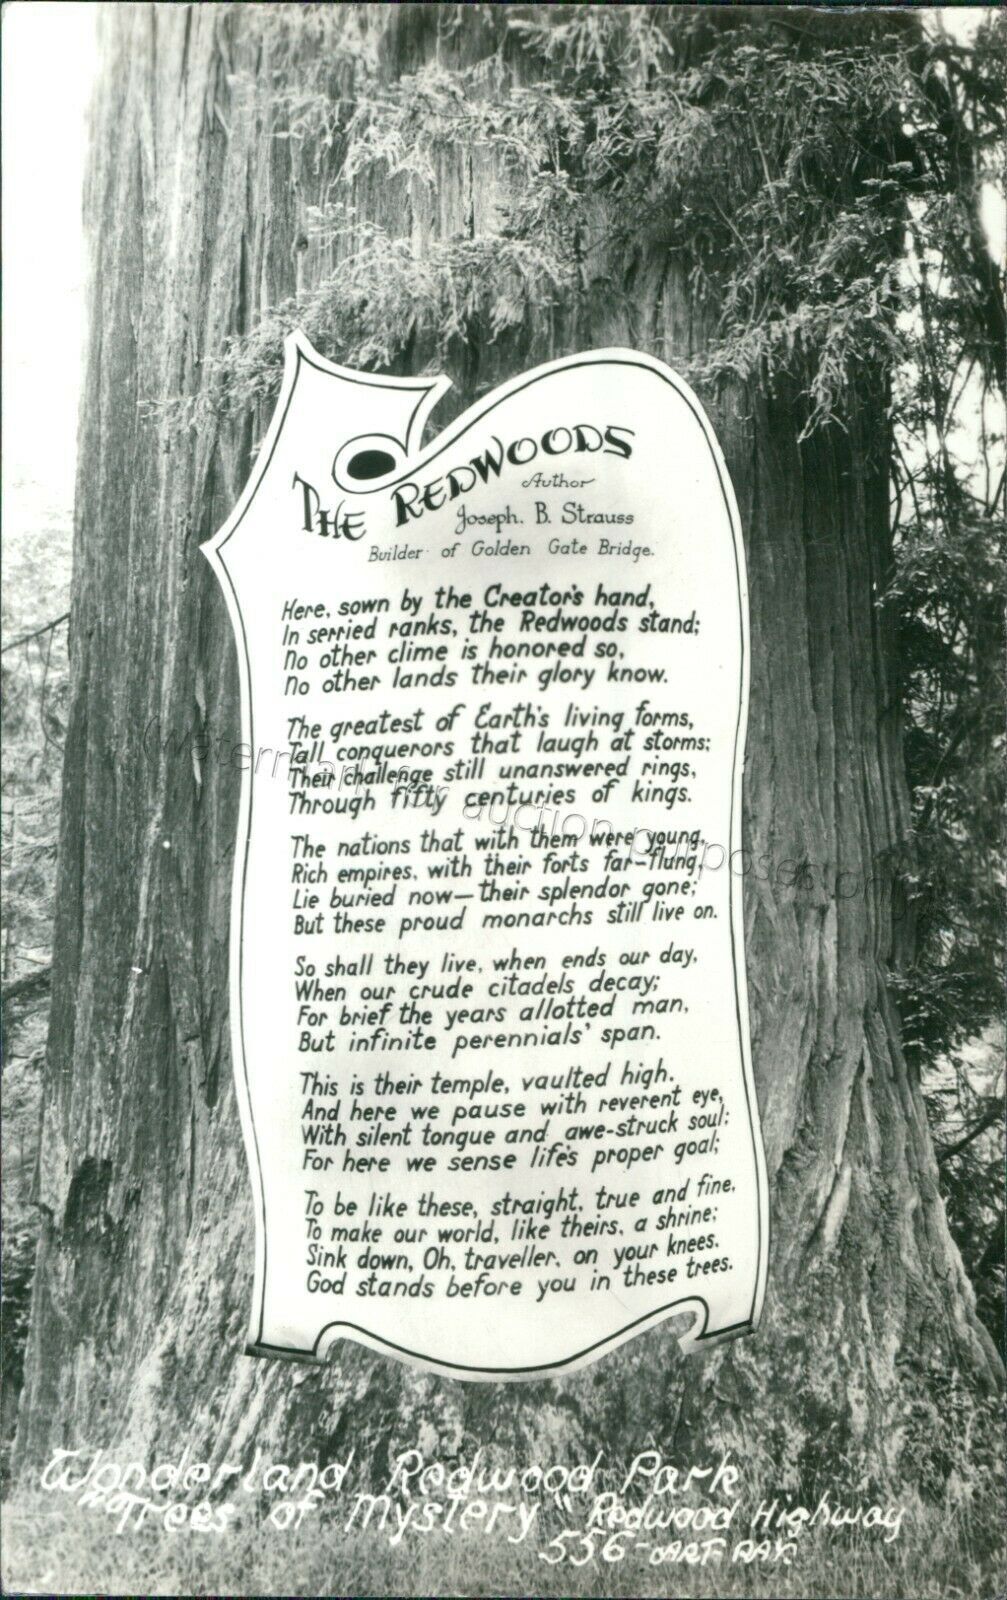 The Redwoods
Author
Joseph. B. Strauss
Builder of Golden Gate Bridge.
Here, sown by the Creator's hand,
In serried ranks, the Redwoods stand;
No other clime is honored so,
No other lands their glory know.
The greatest of Earth's living forms,
Tall conquerors that laugh at storms;
Their challenge still unanswered rings,
Through fifty centuries of kings.
The nations that with them were young,
Rich empires, with their forts far-flung,
Lie buried now—their splendor gone;
But these proud monarchs still live on.
So shall they live, when ends our day,
When our crude citadels decay;
For brief the years allotted man,
But infinite perennials' span.
This is their temple, vaulted high.
And here we pause with reverent eye,
With silent tongue and awe-struck soul;
For here we sense life's proper goal;
To be like these, straight, true and fine,
To make our world, like theirs, a shrine;
Sink down, Oh, traveller, on your knees.
God stands before you in these trees.
(watermark for auction purposes only)
Wonderland Redwood Park
"Trees of Mystery" Redwood Highway
556-ART-RAY.